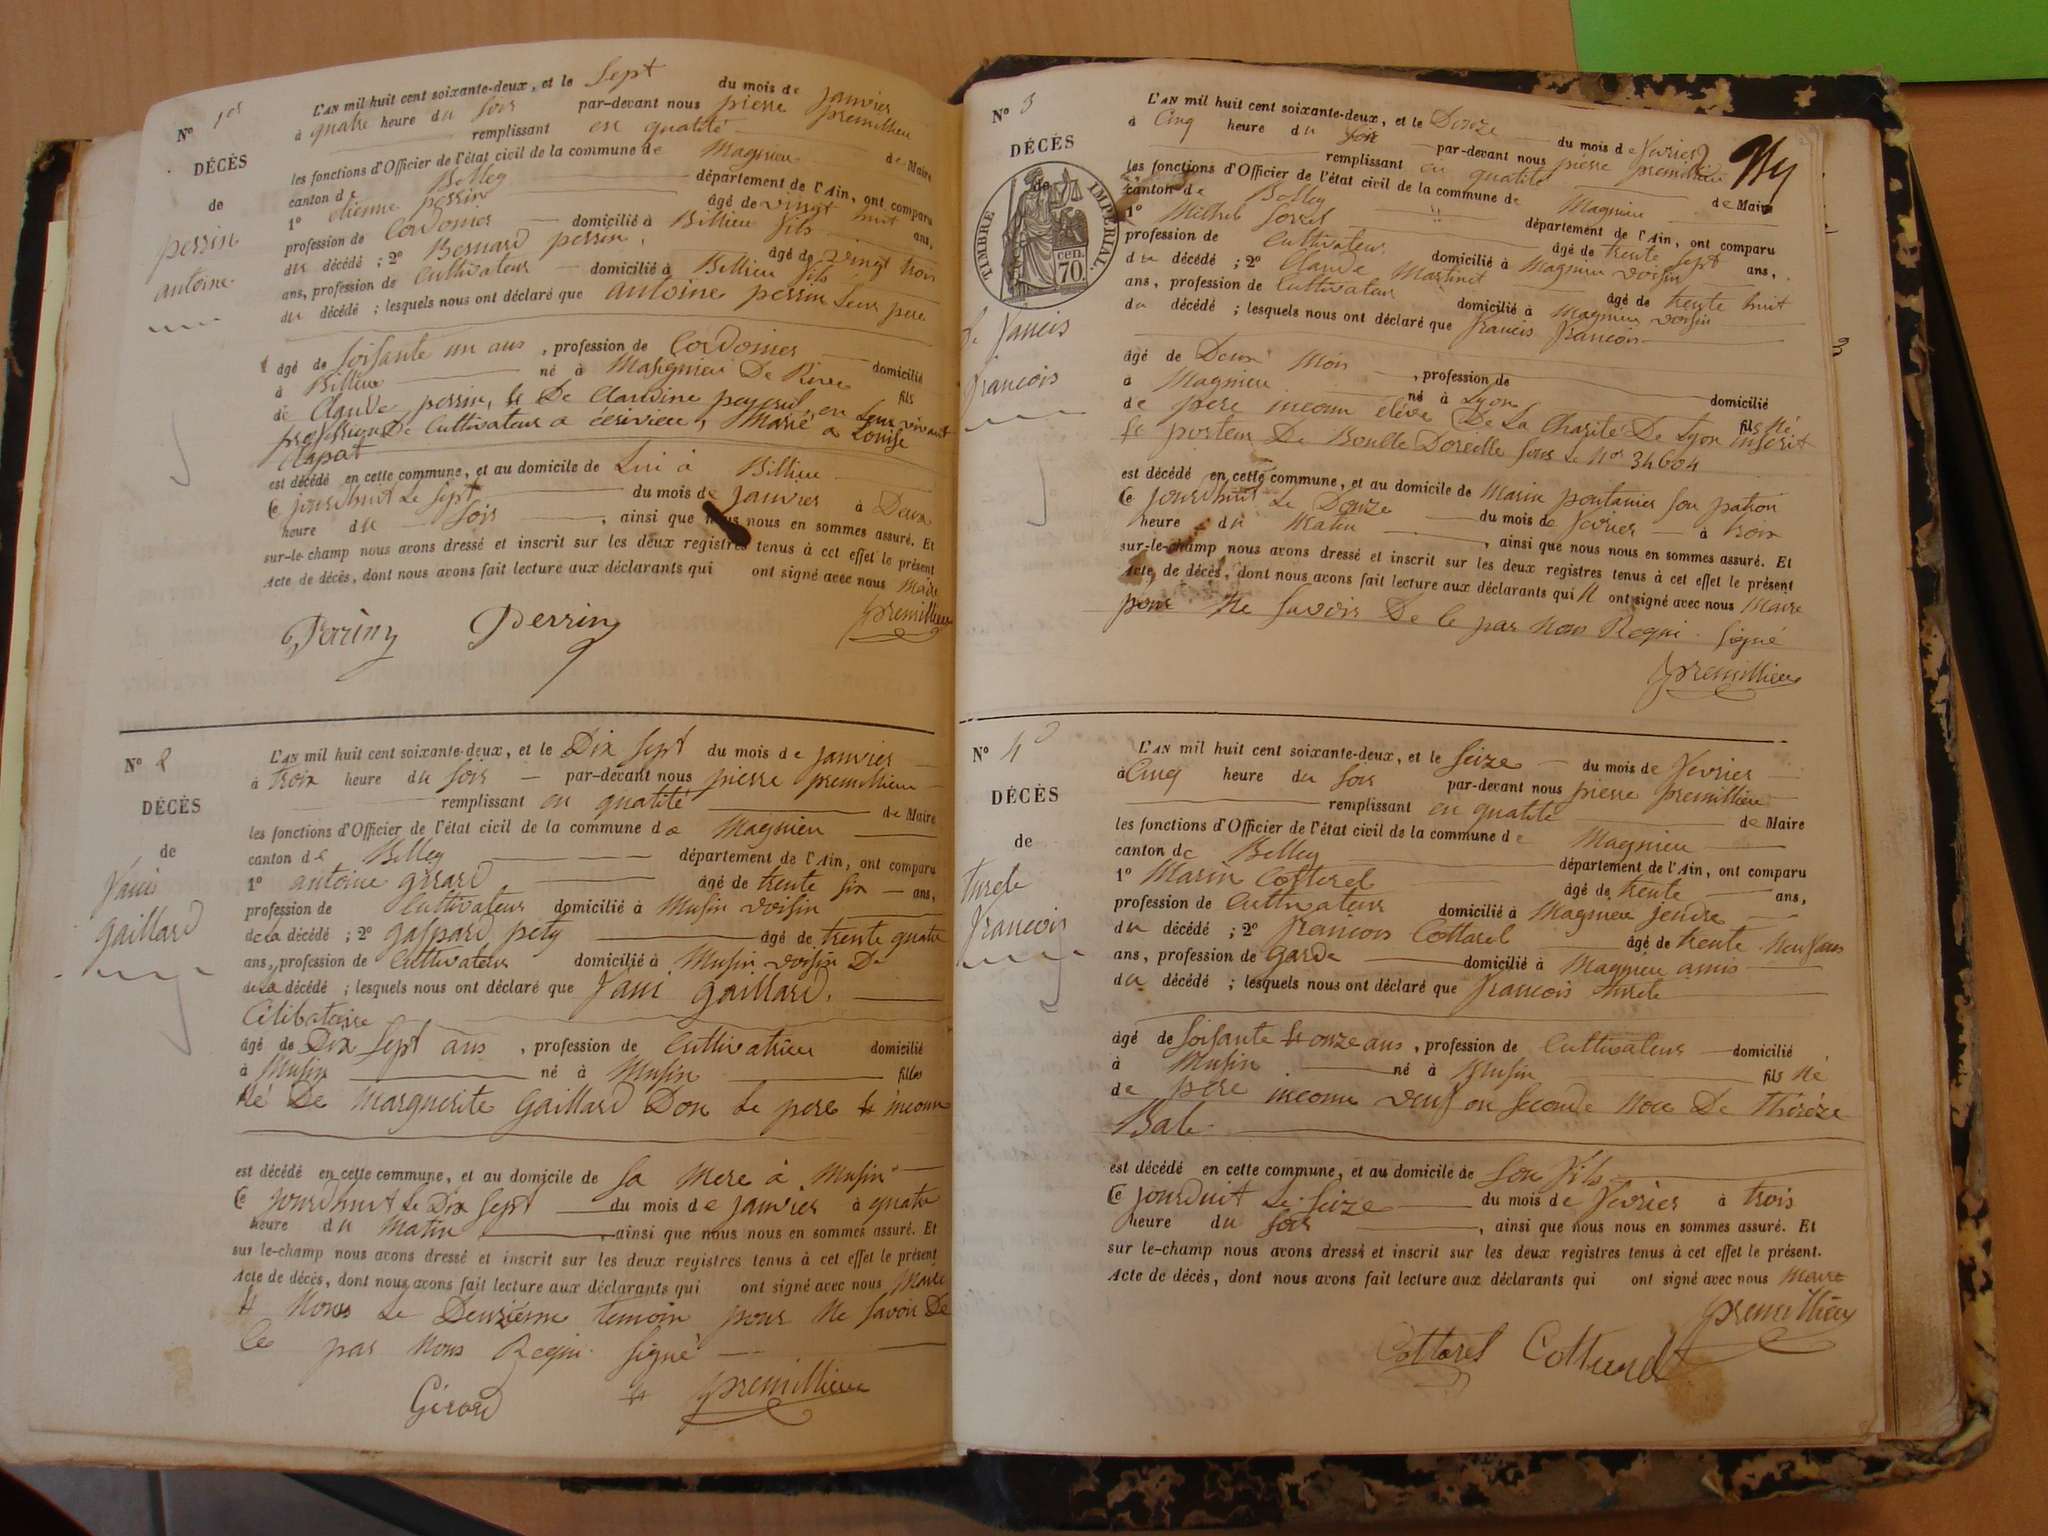 N° 1er
DÉCÈS
de
perrin
antoine
L'AN mil huit cent soixante-deux, et le Sept du mois de janvier
à quatre heure du soir par-devant nous pierre premillieu
remplissant en qualité de Maire
les fonctions d'Officier de l'état civil de la commune de Magnieu
canton de Belley département de l'Ain, ont comparu
1° etienne perrin âgé de vingt huit ans,
profession de Cordonier domicilié à Billieu fils
du décédé ; 2° Bernard perrin, âgé de vingt trois
ans, profession de Cultivateur domicilié à Billieu fils
du décédé ; lesquels nous ont déclaré que antoine perrin Leur pere
âgé de soisante un ans, profession de Cordonier domicilié
à Billieu né à Masignieu De Rive fils
de Claude perrin, et De Claudine en Leur vivant
profession De Cultivateur a , Marié a Louise
Clapat
est décédé en cette commune, et au domicile de Lui à Billieu
Ce jourdhuit Le Sept du mois de janvier à Deux
heure du Soir, ainsi que nous nous en sommes assuré. Et
sur-le-champ nous avons dressé et inscrit sur les deux registres tenus à cet effet le présent
Acte de décès, dont nous avons fait lecture aux déclarants qui ont signé avec nous Maire
premillieu
Perriny Perrin
N° 2
DÉCÈS
de
Jani
Gaillard
L'AN mil huit cent soixante-deux, et le Dix Sept du mois de janvier
à trois heure du soir par-devant nous pierre premillieu
remplissant en qualité de Maire
les fonctions d'Officier de l'état civil de la commune de Magnieu
canton de Belley département de l'Ain, ont comparu
1° antoine girard âgé de trente six ans,
profession de Cultivateur domicilié à Musin voisin
de la décédé ; 2° gaspard pety âgé de trente quatre
ans, profession de Cultivateur domicilié à Musin voisin De
de La décédé ; lesquels nous ont déclaré que Jani Gaillard.
Célibataire
âgé de Dix Sept ans, profession de Cultivatrice domicilié
à Musin né à Musin filles
Né De Marguerite Gaillard Don Le pere et inconu
est décédé en cette commune, et au domicile de Sa Mere à Musin
Ce jourdhuit Le Dix Sept du mois de janvier à quatre
heure du Matin, ainsi que nous nous en sommes assuré. Et
sur le-champ nous avons dressé et inscrit sur les deux registres tenus à cet effet le présent
Acte de décès, dont nous avons fait lecture aux déclarants qui ont signé avec nous Maire
et Nons Le Deuzieme temoin pour Ne Savoir De
Ce par Nous Requi. Signé
Girard et premillieu
N° 3
DÉCÈS
de
TIMBRE IMPÉRIAL.
70 cen.
francis
francois
L'AN mil huit cent soixante-deux, et le Douze du mois de fevrier
à Cinq heure du soir par-devant nous pierre premillieu
remplissant en qualité de Maire
les fonctions d'Officier de l'état civil de la commune de Magnieu
canton de Belley département de l'Ain, ont comparu
1° Michel âgé de trente Sept ans,
profession de Cultivateur domicilié à Magnieu voisin
du décédé ; 2° Claude Martinet âgé de trente huit
ans, profession de Cultivateur domicilié à Magnieu voisin
du décédé ; lesquels nous ont déclaré que francis francois
âgé de Deux Mois, profession de domicilié
à Magnieu né à Lyon fils Né
de pere inconu élève De La Charité De Lyon inscrit
et porteur De Boucle Doreille Sous Le No 34604
est décédé en cette commune, et au domicile de Marin pontanier Son patron
Ce jourdhuit Le Douze du mois de fevrier à trois
heure du Matin, ainsi que nous nous en sommes assuré. Et
sur-le-champ nous avons dressé et inscrit sur les deux registres tenus à cet effet le présent
Acte de décès, dont nous avons fait lecture aux déclarants qui N ont signé avec nous Maire
pour Ne Savoir De Ce par Nous Requi. Signé
premillieu
N° 4
DÉCÈS
de
turele
francois
L'AN mil huit cent soixante-deux, et le Seize du mois de fevrier
à Cinq heure du soir par-devant nous pierre premillieu
remplissant en qualité de Maire
les fonctions d'Officier de l'état civil de la commune de Magnieu
canton de Belley département de l'Ain, ont comparu
1° Marin Cotterel âgé de trente ans,
profession de Cultivateur domicilié à Magnieu gendre
du décédé ; 2° francois Cottarel âgé de trente Neuf ans
ans, profession de garde domicilié à Magnieu amis
du décédé ; lesquels nous ont déclaré que francois turele
âgé de Soisante et onze ans, profession de Cultivateur domicilié
à Musin né à Musin fils Né
de pere inconu veuf en Seconde Noce De thérèze
Bale
est décédé en cette commune, et au domicile de Son fils
Ce jourduit Le Seize du mois de fevrier à trois
heure du Soir, ainsi que nous nous en sommes assuré. Et
sur le-champ nous avons dressé et inscrit sur les deux registres tenus à cet effet le présent.
Acte de décès, dont nous avons fait lecture aux déclarants qui ont signé avec nous Maire
premillieu
Cottarel